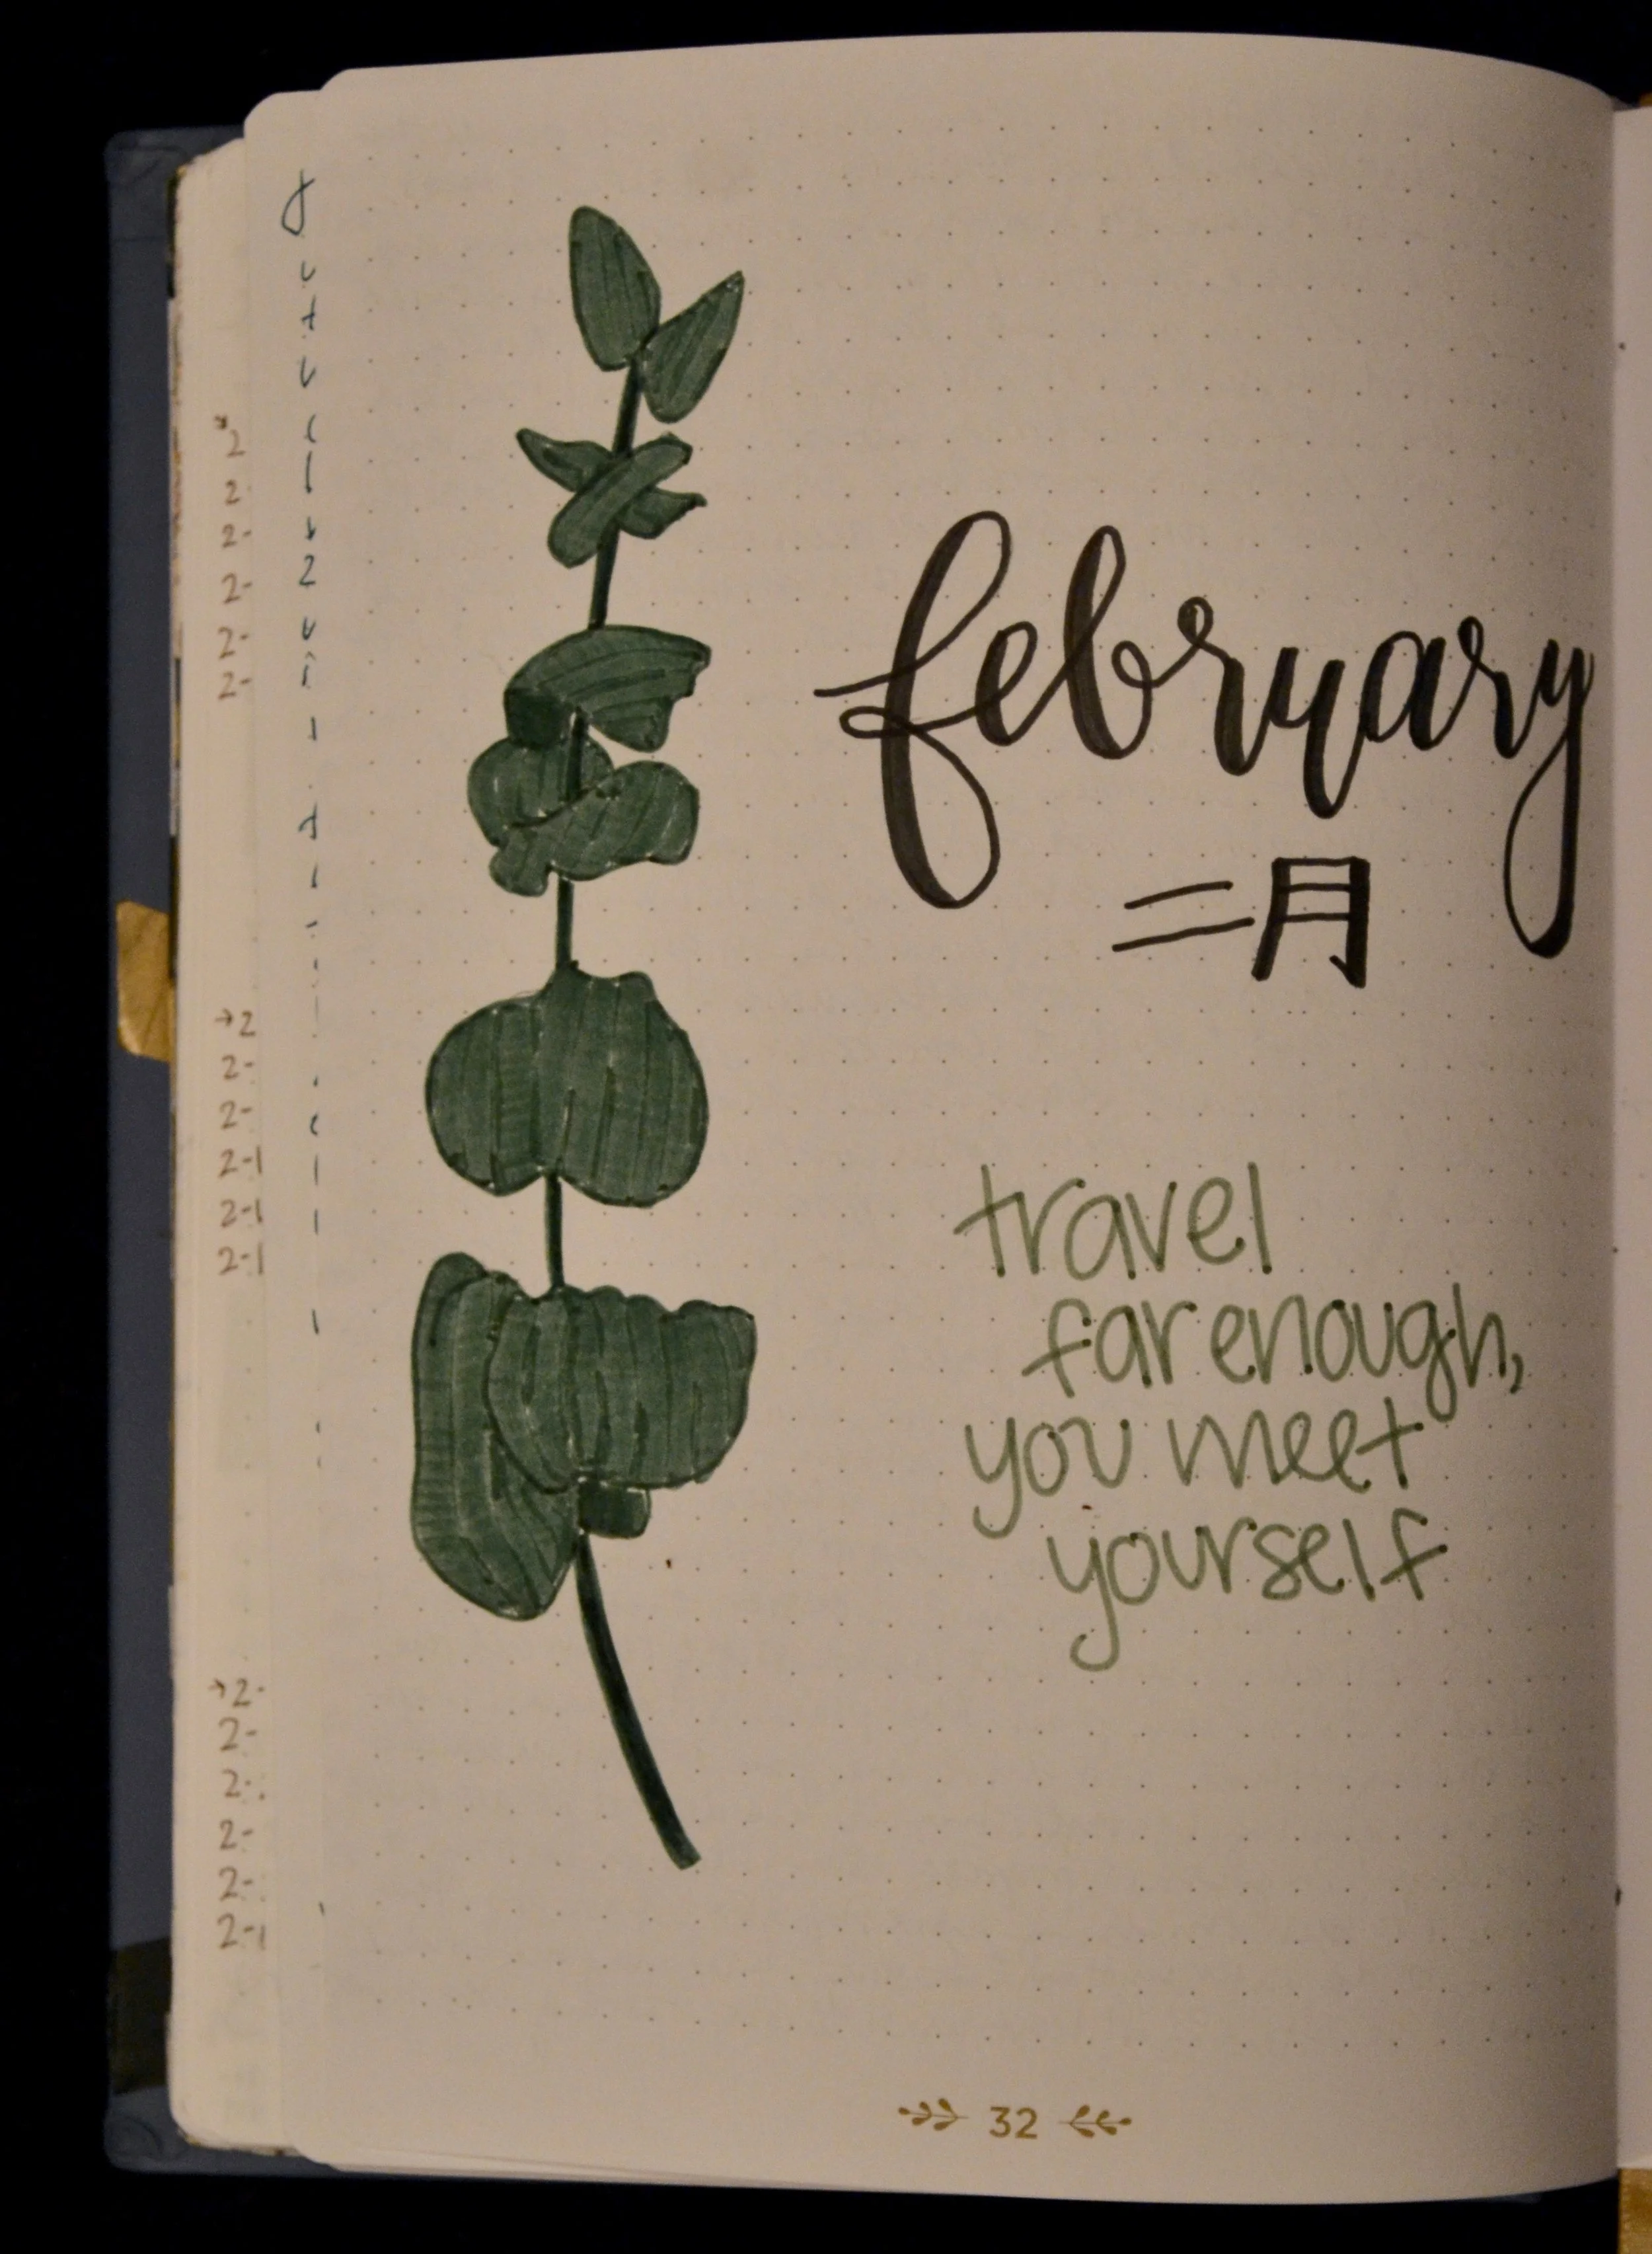 february
二月
travel
far enough,
you meet
yourself
32